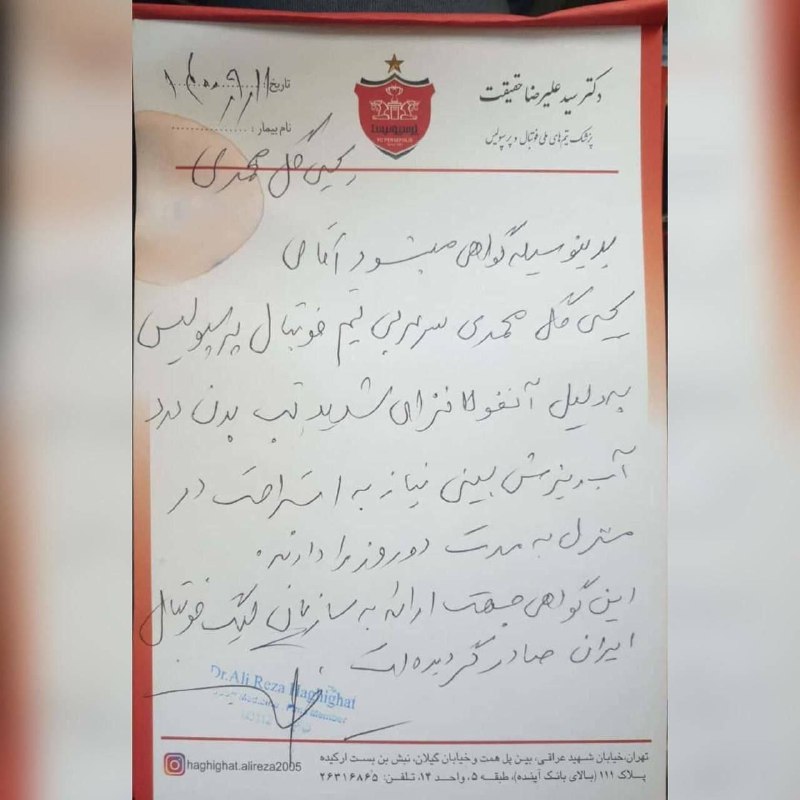 دکتر سید علیرضا حقیقت
پزشک تیم‌های ملی فوتبال و پرسپولیس
پرسپولیس
تاریخ: ۱۴۰۰/۹/۱۱
نام بیمار:
یحیی گل محمدی
بدینوسیله گواهی میشود آقای
یحیی گل محمدی سرمربی تیم فوتبال پرسپولیس
به دلیل آنفولانزای شدید تب بدن درد
آب ریزش بینی نیاز به استراحت در
منزل به مدت دو روز را دارند.
این گواهی جهت ارائه به سازمان لیگ فوتبال
ایران صادر گردیده است.
Dr.Ali Reza Haghighat
تهران،خیابان شهید عراقی، بین پل همت و خیابان گیلان، نبش بن بست ارکیده
پلاک ۱۱۱ (بالای بانک آینده)، طبقه ۵، واحد ۱۴، تلفن: ۲۶۳۱۶۸۶۵
haghighat.alireza2005